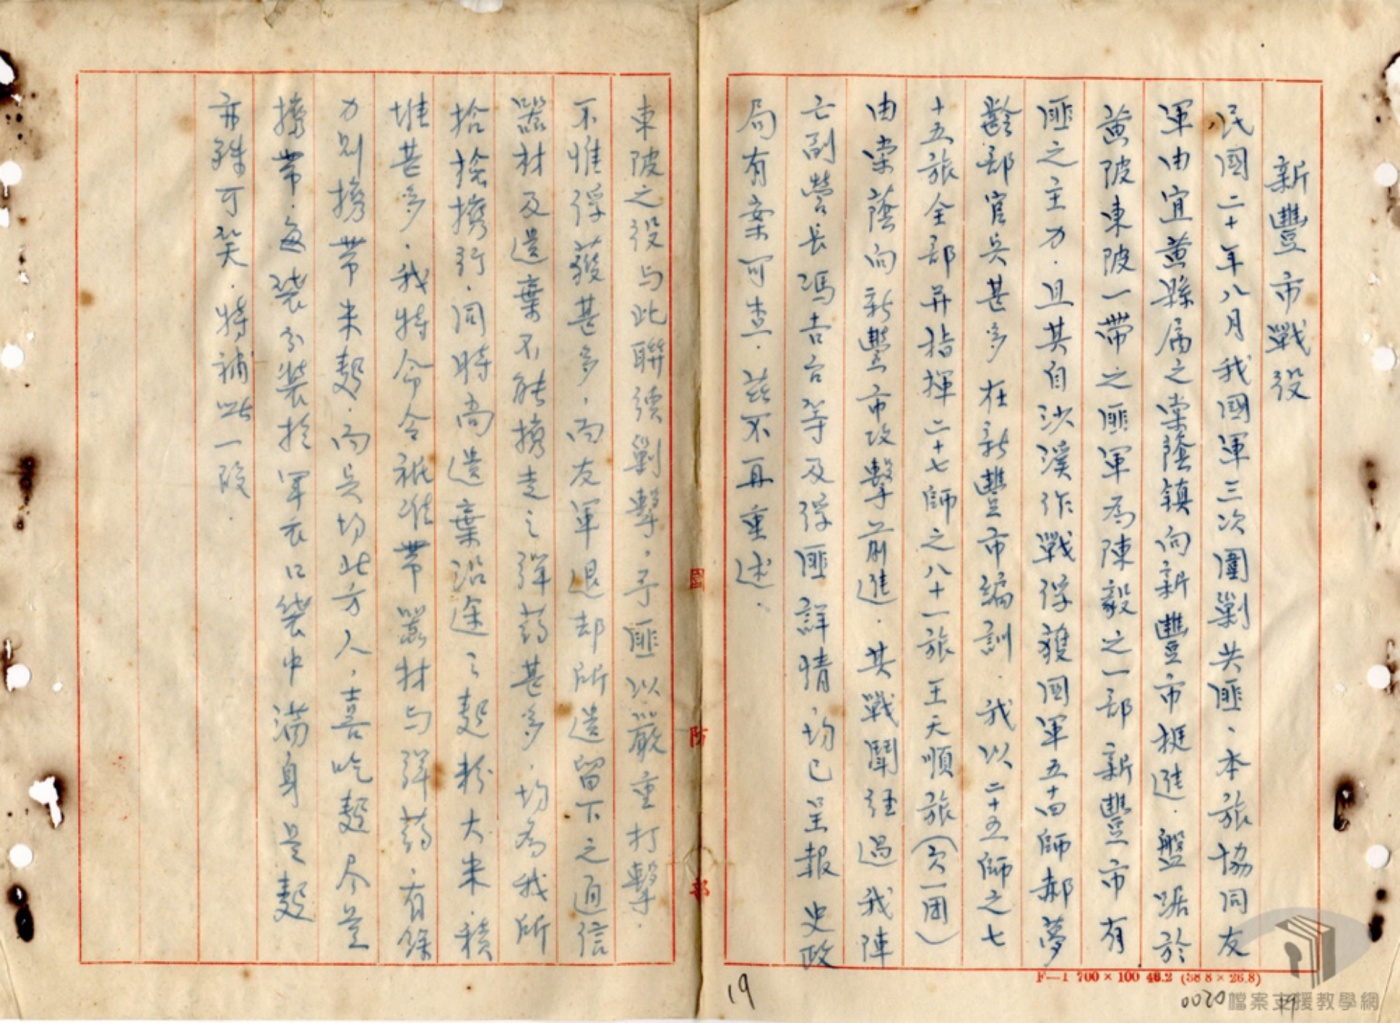 新豐市戰役
民國二十年八月我國軍三次圍剿共匪、本旅協同友
軍由宜黃縣屬之棠蔭鎮向新豐市挺進．盤踞於
黃陂東陂一帶之匪軍為陳毅之一部新豐市有
匪之主力．且其自沙溪作戰俘獲國軍五十四師郝夢
齡部官兵甚多在新豐市編訓．我以二十五師之七
十五旅全部并指揮二十七師之八十一旅王天順旅（欠一團）
由棠蔭向新豐市攻擊前進．其戰鬪經過我陣
亡副營長馮吉台等及俘匪詳情．均已呈報 史政
局有案可查．茲不再重述．
東陂之役与此聯續剿擊．予匪以嚴重打擊．
不惟俘獲甚多，而友軍退却所遺留下之通信
器材及遺棄不能携走之彈葯甚多．均為我所
拾撿携行．同時尚遺棄沿途之麪粉大米積
堆甚多．我特命令祇准帶器材与彈葯．有餘
力則携帶米麪．而兵均北方人．喜吃麪尽是
携帶．每袋分裝於軍衣口袋中滿身是麪
亦殊可笑．特補此一段．
國防部
F—1 700×100 46.2 (38.8×26.8)
19
0020
檔案支援教學網